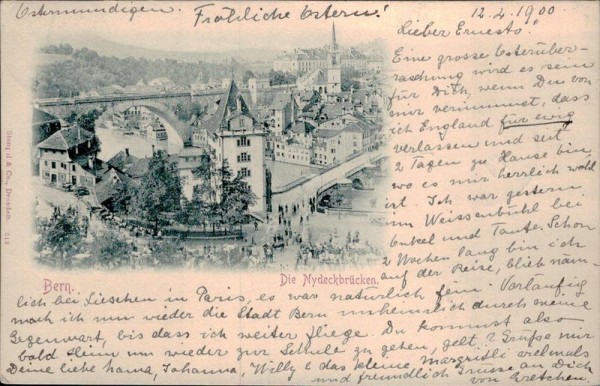 Ostermundigen. Fröhliche Ostern!
12.4.1900.
Lieber Ernesto!
Eine grosse Osterüber-
raschung wird es sein
für Dich, wenn Du von
mir vernimmst, dass
ich England für ewig
verlassen und seit
2 Tagen zu Hause bin,
wo es mir herrlich wohl
ist. Ich war gestern
im Weissenbühl bei
Onkel und Tante. Schon
2 Wochen lang bin ich
auf der Reise, blieb näm-
lich bei Lieschen in Paris, es war natürlich fein. Vorläufig
mach ich nun wieder die Stadt Bern unheimlich durch meine
Gegenwart, bis dass ich weiter fliege. Du kommst also
bald Heim um wieder zur Schule zu gehen, gelt? Grüsse mir
Deine liebe Mama, Johanna, Willy & das kleine Margritli vielmals
und freundlich Grüsse an Dich
von Gretchen
Bern.
Die Nydeckbrücken.
& Co., Dresden.